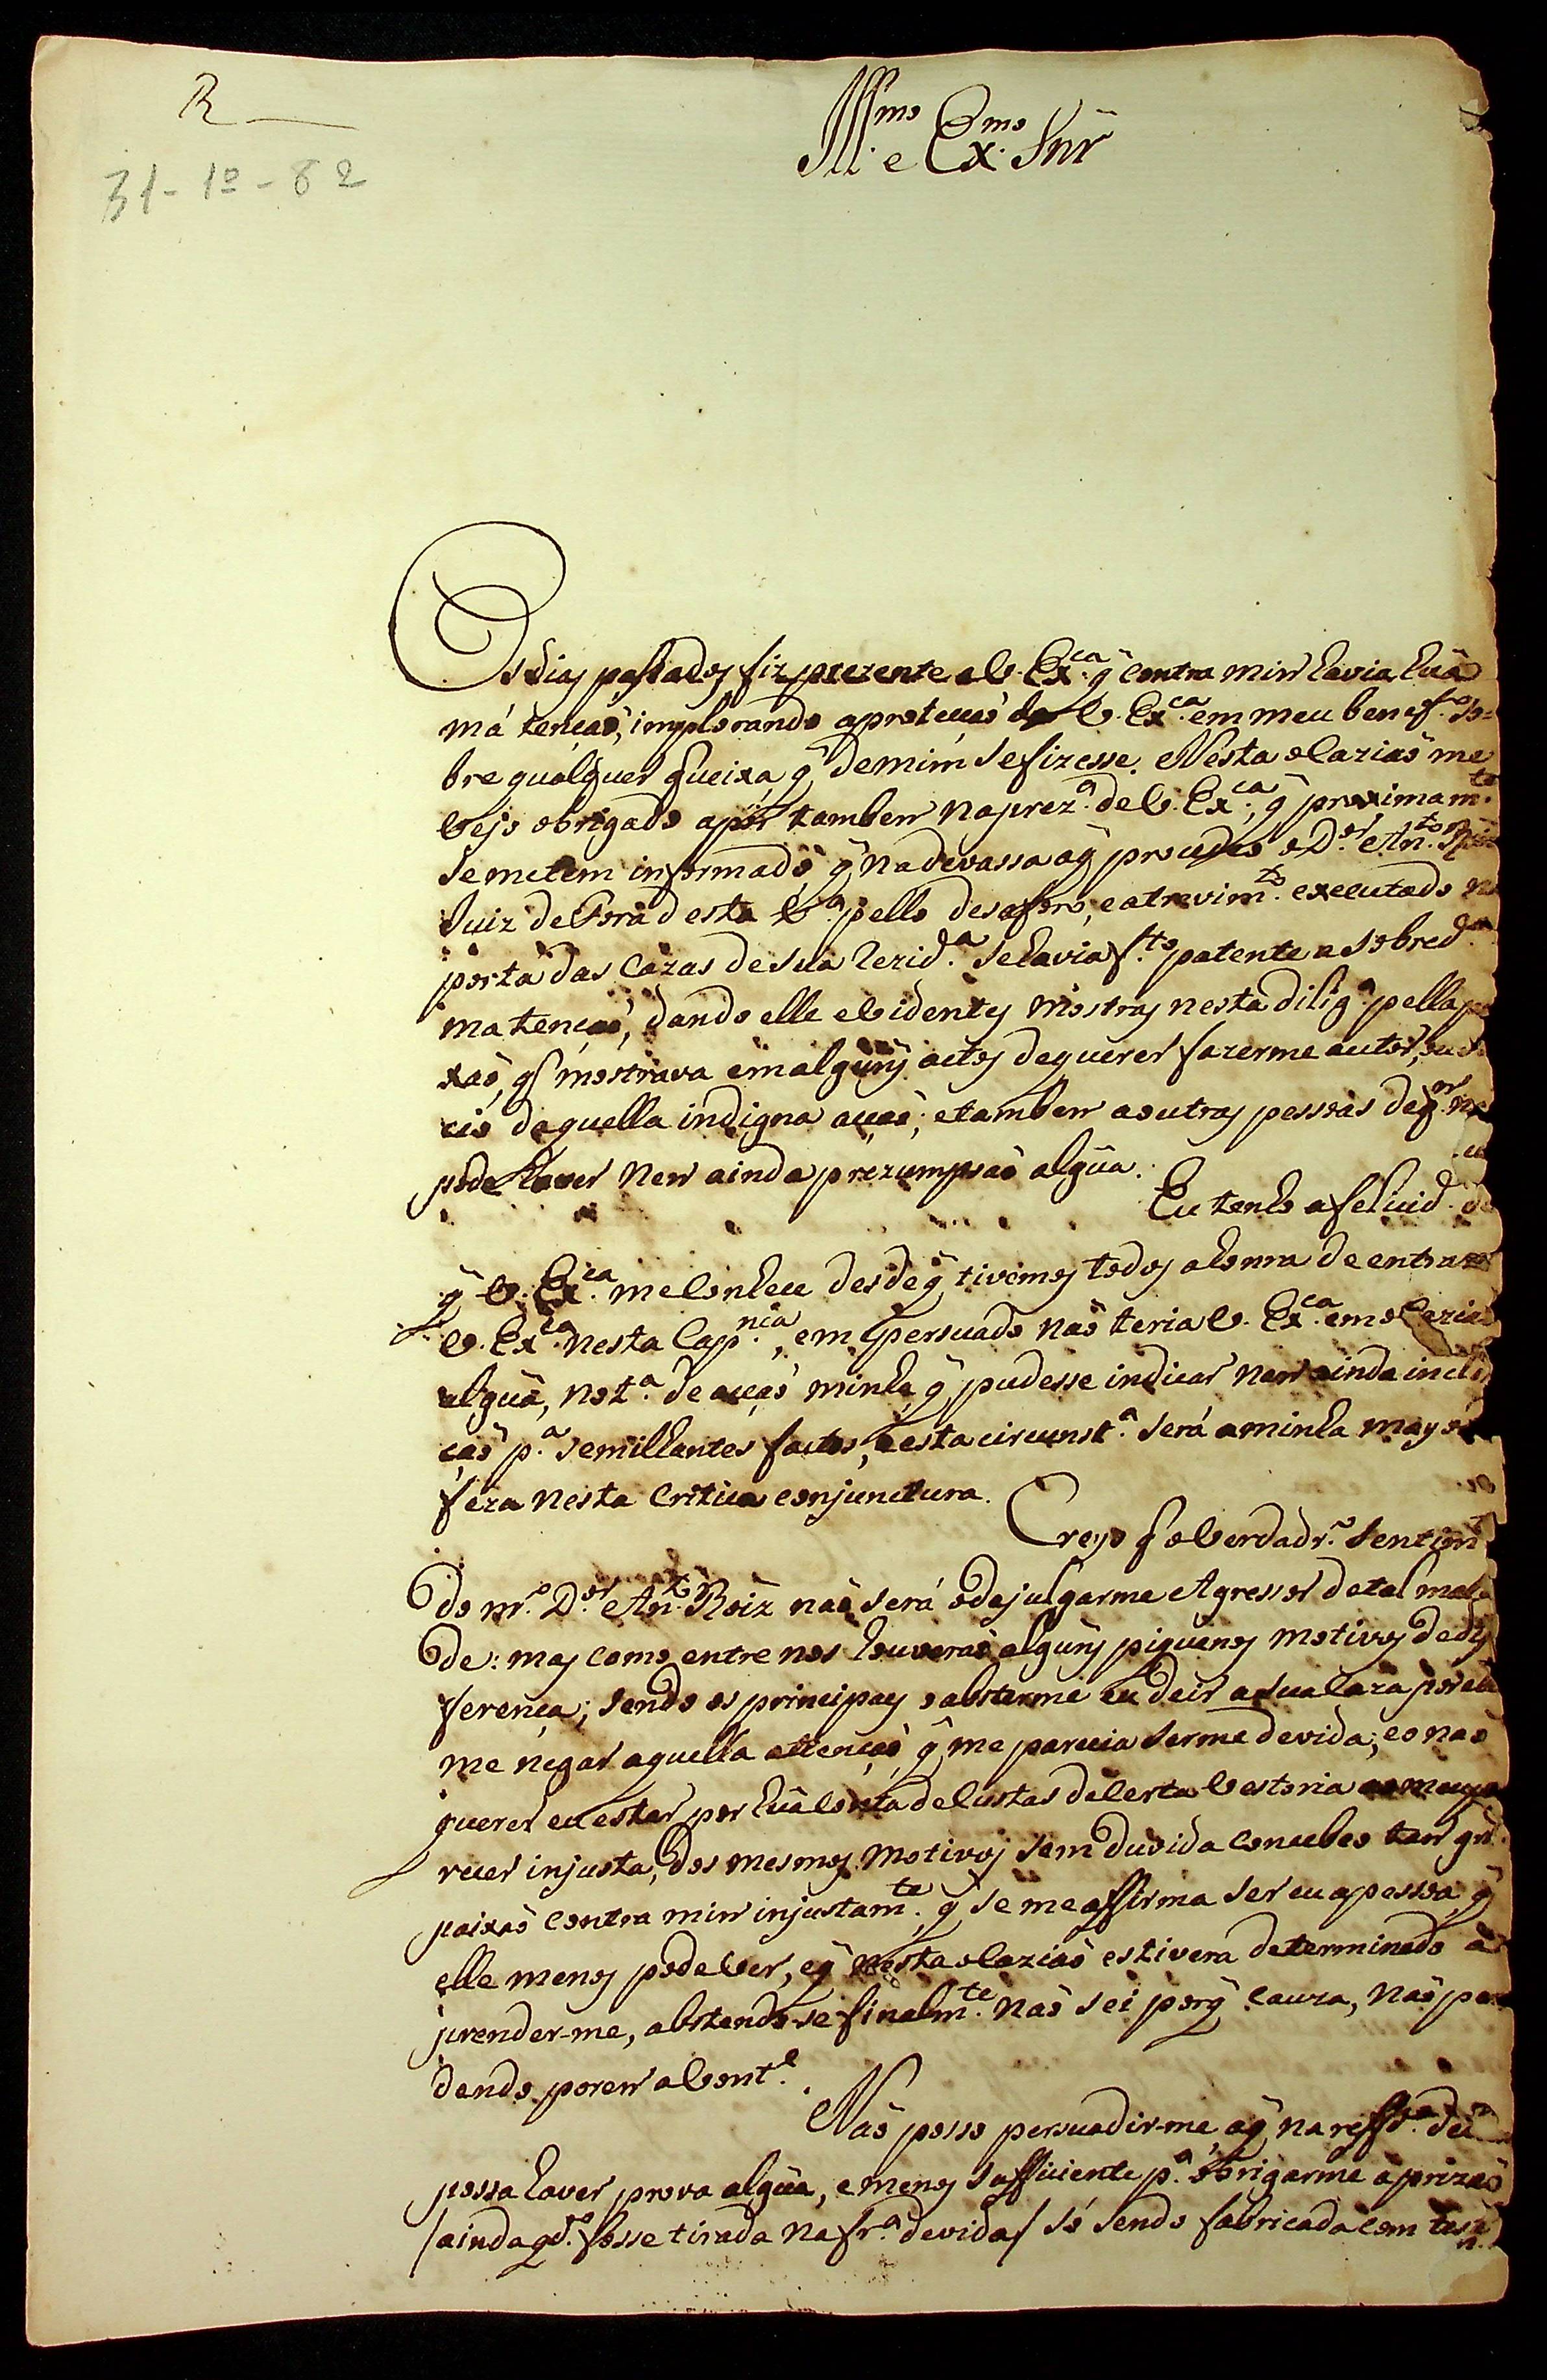 R
31-10-82
Ill.mo e Ex.mo Snr
Os dias passados fiz prezente a V. Ex.ca q̃ contra mim havia hũa
má tençaõ, implorando a protecçaõ de V. Ex.ca em meu benef.o so-
bre qualquer queixa, q̃ de mim se fizesse. Nesta occaziaõ me
vejo obrigado a pôr tambem na prez.a de V. Ex.ca, q̃ proximam.te
se me tem informado, q̃ na devassa a q̃ procedeo o D.or An.to Roiz
Juiz de Fora desta V.a pello desaforo, e atrevim.to executado na
porta das cazas de sua rezid.a se havia f.to patente a sobred.a
ma tençaõ, dando elle evidentes mostras nesta dilig.a pella
xaõ, q̃ mostrava em alguns actos de querer fazerme autor, ou
cio daquella indigna acçaõ; e tambem a outras pessoas de q.m
pode haver nem ainda prezumpsaõ algũa.
Eu tenho a felicid.e de
q̃ V. Ex.ca me conhece desde q̃ tivemos todos a honra de entrar
V. Ex.ca nesta Cap.nia, e me persuado naõ teria V. Ex.ca em occaziaõ
algũa, not.a de acçaõ minha, q̃ pudesse indicar nem ainda incli
çaõ p.a semilhantes factos, e esta circunst.a será a minha mayor
feza nesta critica conjunctura.
Creyo q̃ o verdadr.o sentim.to
do m.o D.or An.to Roiz naõ será o de julgarme Agressor de tal malda
de: mas como entre nos houveraõ alguns piquenos motivos de dif
ferença; sendo os principaes o absterme eu de ir a sua caza por elle
me negar aquella attençaõ, q̃ me parecia serme devida; e o naõ
querer eu estar por hũa conta de custas de certa vestoria
recer injusta, dos mesmos motivos sem duvida concebeo tam gr.de
paixaõ contra mim injustam.te, q̃ se me affirma ser eu a pessoa, q̃
elle menos pode ver, e q̃ nesta occaziaõ estivera determinado a
prender-me, abstendo-se finalm.te naõ sei porq̃ cauza, naõ per
dendo porem a vont.e.
Naõ posso persuadir-me a q̃ na reff.da
possa haver prova algũa, e menos sufficiente p.a obrigarme a prizaõ
/ainda qd.o fosse tirada na fr.a devida/ só sendo fabricada com